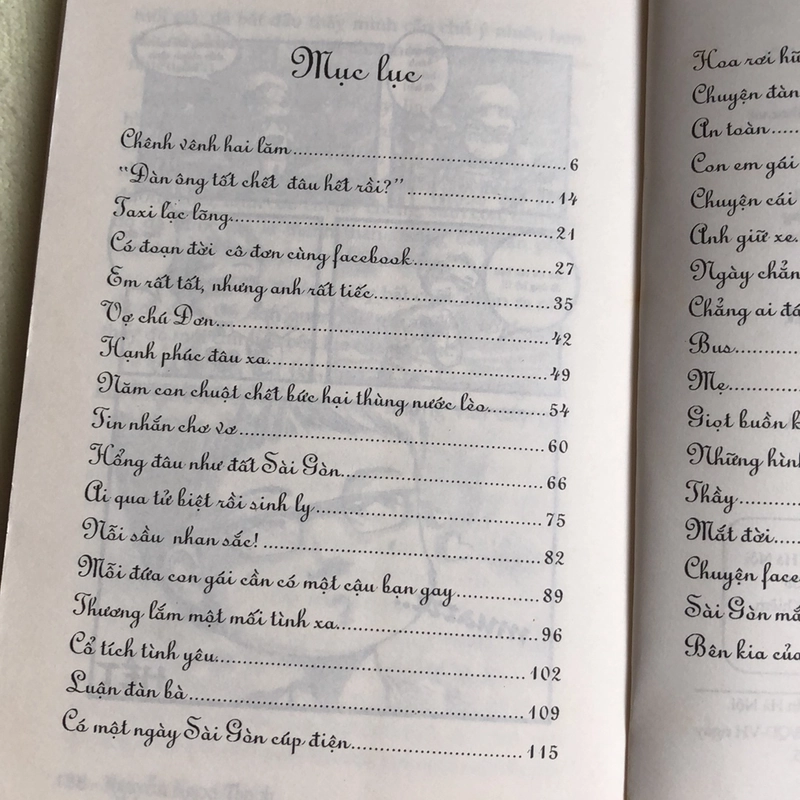 Mục lục
Chênh vênh hai lăm 6
“Đàn ông tốt chết đâu hết rồi?” 14
Taxi lạc lõng 21
Có đoạn đời cô đơn cùng facebook 27
Em rất tốt, nhưng anh rất tiếc 35
Vợ chú Đơn 42
Hạnh phúc đâu xa 49
Năm con chuột chết bức hại thùng nước lèo 54
Tin nhắn chơ vơ 60
Hổng đâu như đất Sài Gòn 66
Ai qua tử biệt rồi sinh ly 75
Nỗi sầu nhan sắc! 82
Mỗi đứa con gái cần có một cậu bạn gay 89
Thương lắm một mối tình xa 96
Cổ tích tình yêu 102
Luận đàn bà 109
Có một ngày Sài Gòn cúp điện 115
Hoa rơi
Chuyện đàn
An toàn
Con em gái
Chuyện cái
Anh giữ xe
Ngày chẳng
Chẳng ai
Bus
Mẹ
Giọt buồn
Những hình
Thầy
Mắt đời
Chuyện
Sài Gòn
Bên kia của